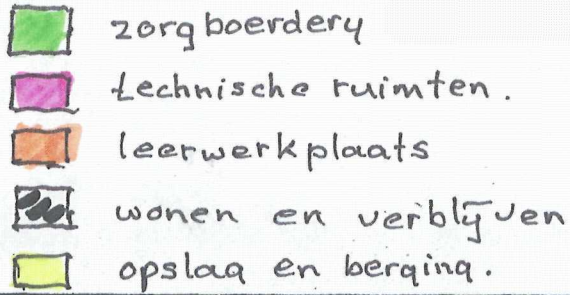 zorgboerdery
technische ruimten.
leerwerkplaats
wonen en verblijven
opslag en berging.